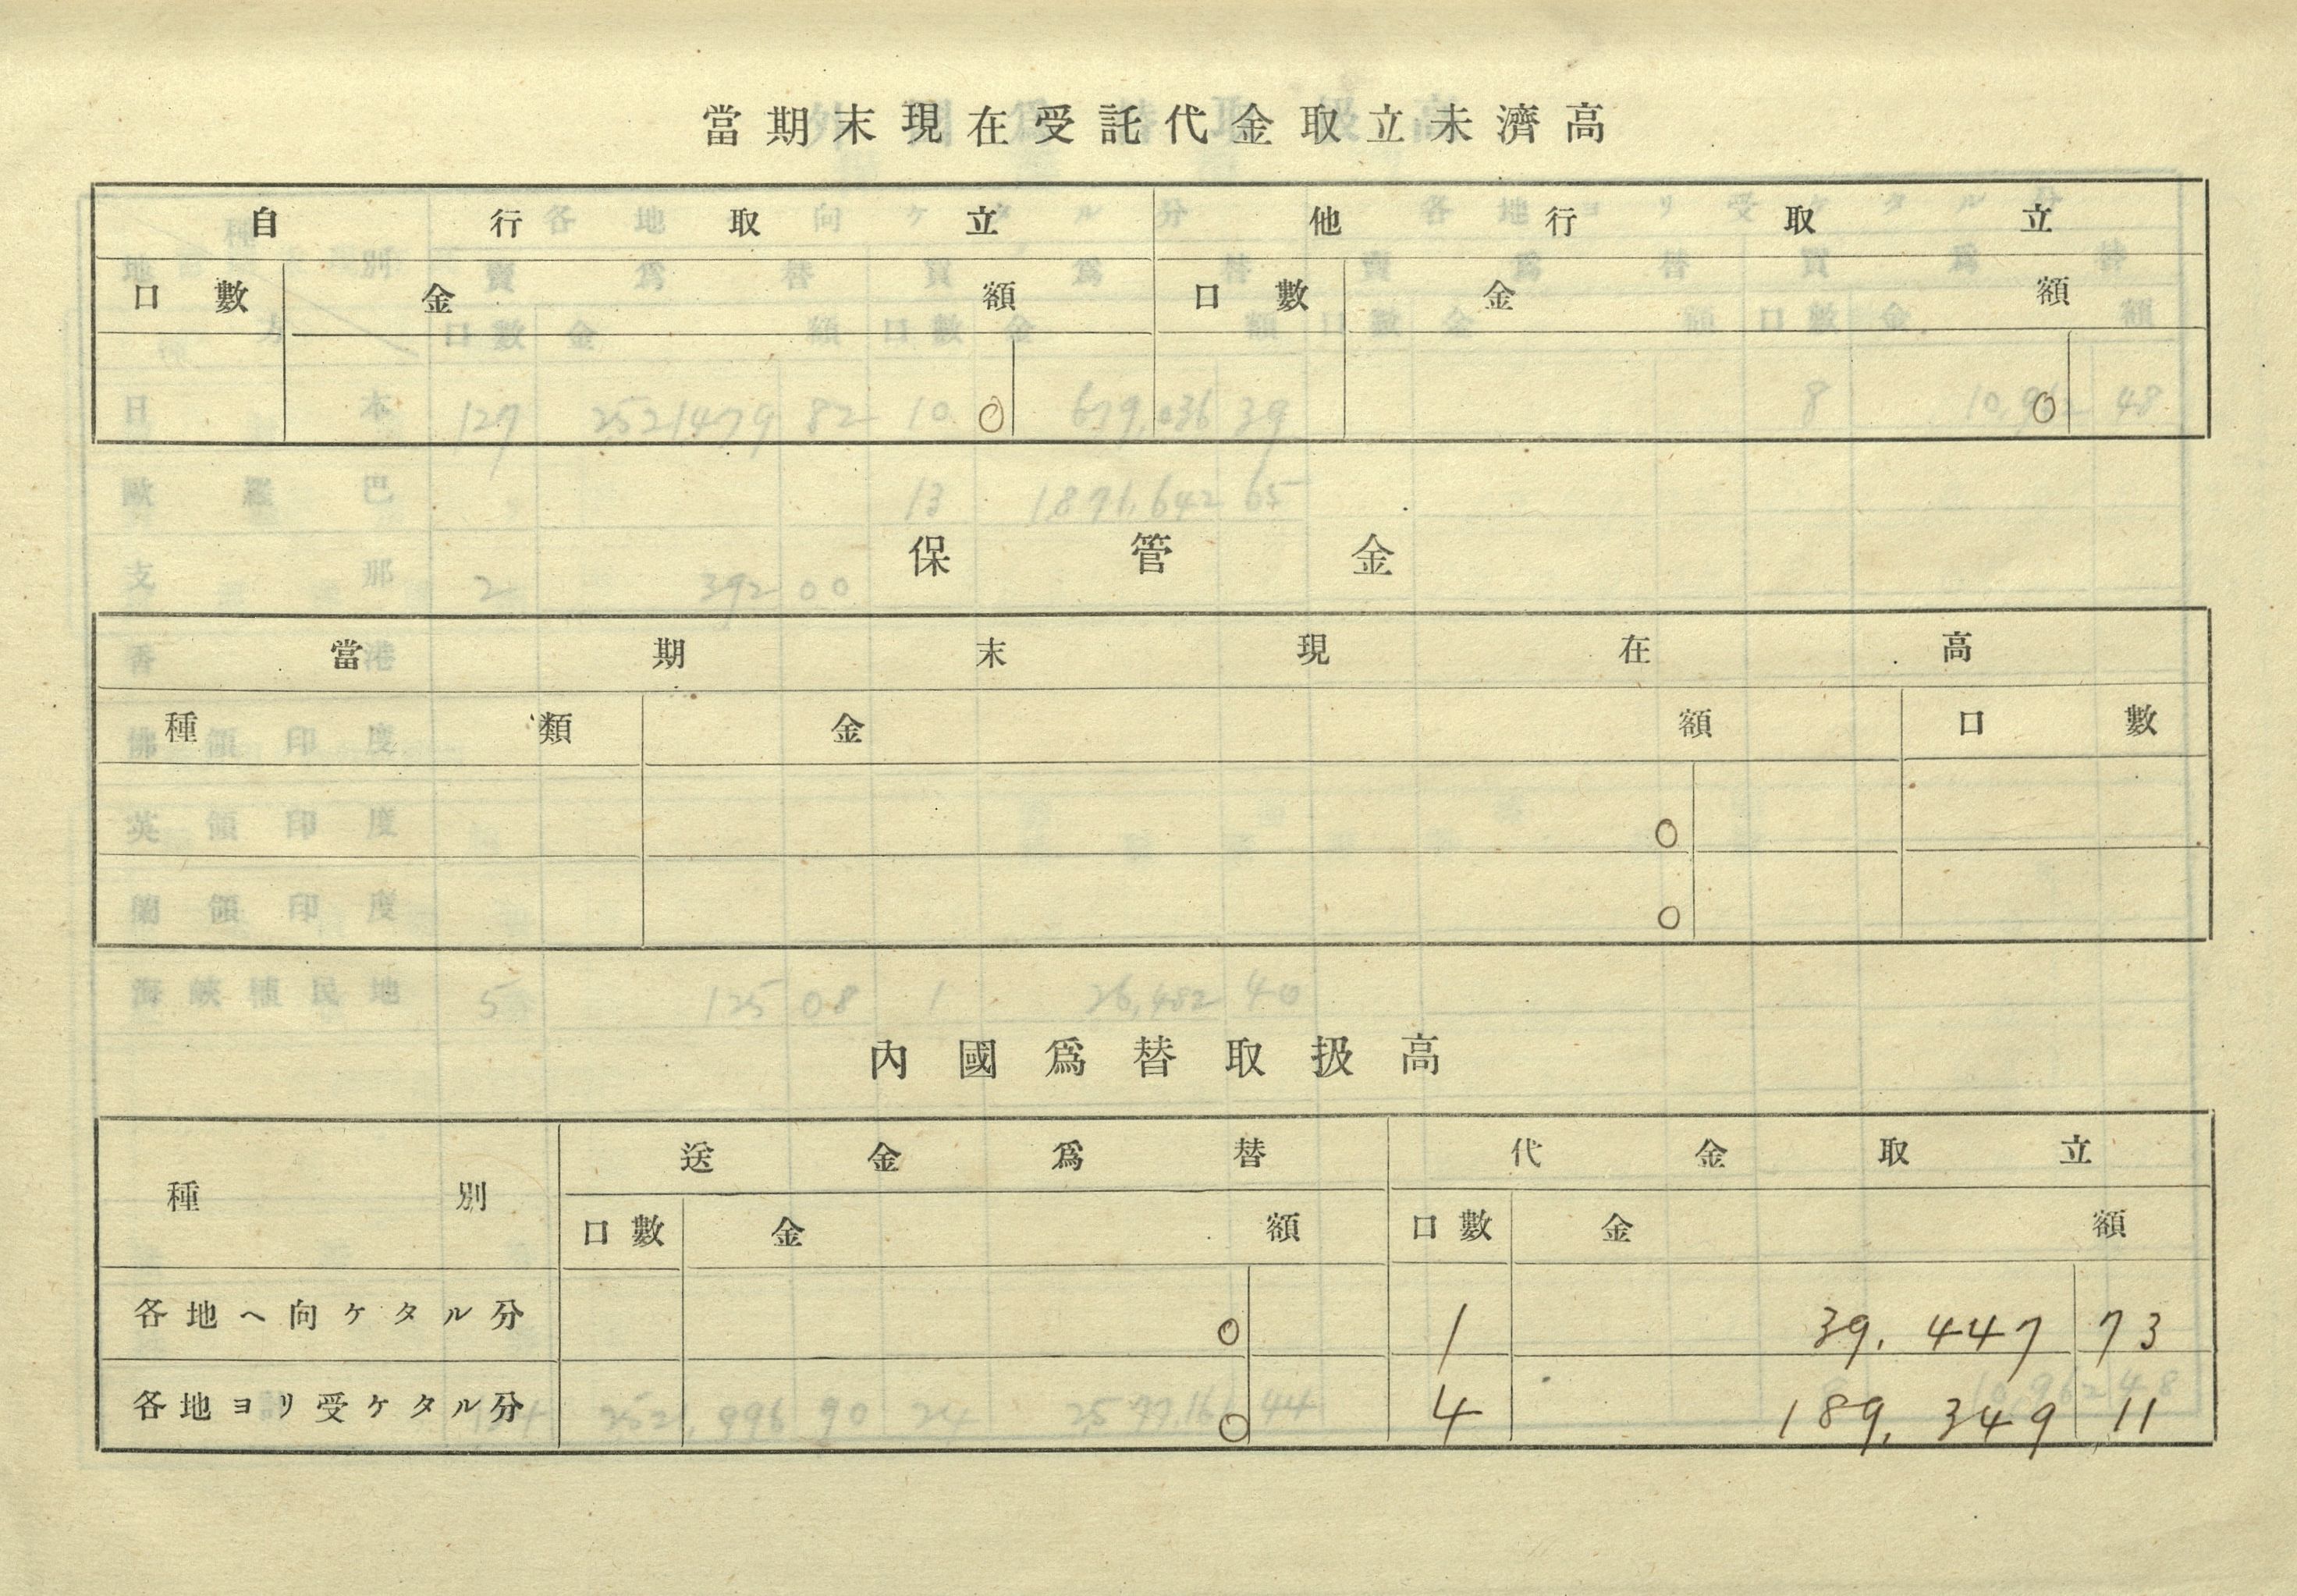 當期末現在受託代金取立未濟高
自行取立 他行取立
口數 金額 口數 金額
0 0
保管金
當期末現在高
種類 金額 口數
0
0
內國爲替取扱高
種別 送金爲替 代金取立
口數 金額 口數 金額
各地ヘ向ケタル分 0 1 39,447 73
各地ヨリ受ケタル分 0 4 189,349 11